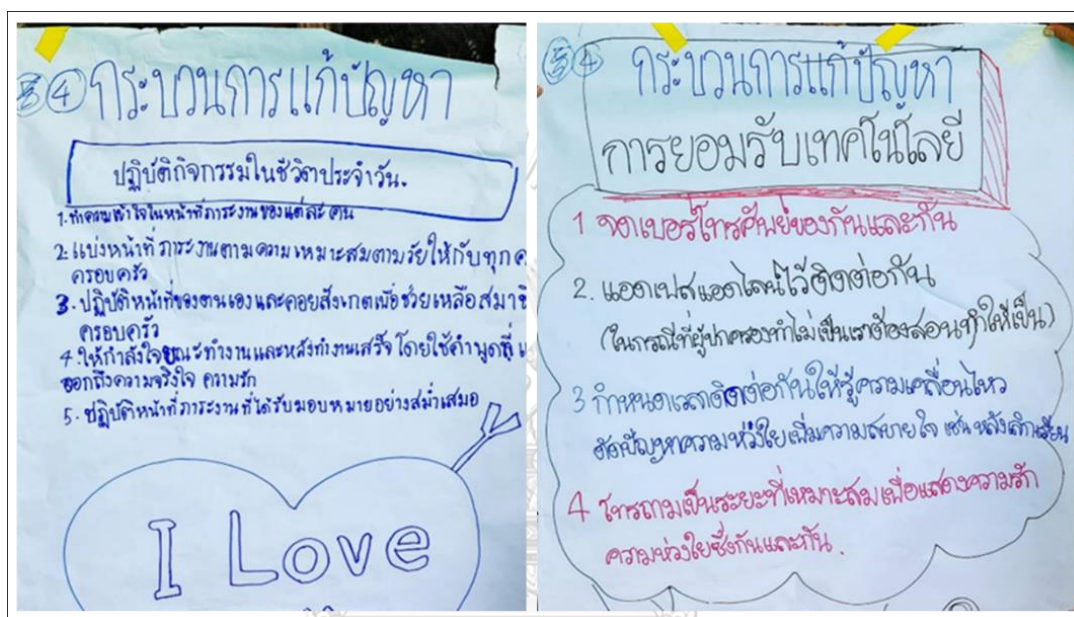 ④ กระบวนการแก้ปัญหา
ปฏิบัติกิจกรรมในชีวิตประจำวัน.
1. ทำความเข้าใจในหน้าที่ภาระงานของแต่ละคน
2. แบ่งหน้าที่ ภาระงานตามความเหมาะสมตามวัยให้กับทุก
ครอบครัว
3. ปฏิบัติหน้าที่ของตนเองและคอยสังเกตเพื่อช่วยเหลือ
ครอบครัว
4. ให้กำลังใจขณะทำงานและหลังทำงานเสร็จ โดยใช้คำพูดที่
ออกถึงความจริงใจ ความรัก
5. ปฏิบัติหน้าที่ภาระงานที่ได้รับมอบหมายอย่างสม่ำเสมอ
I Love
④ กระบวนการแก้ปัญหา
การยอมรับเทคโนโลยี
1 จดเบอร์โทรศัพย์ของกันและกัน
2. แอดเฟสแอดไลน์ไว้ติดต่อกัน
(ในกรณีที่ผู้ปกครองทำไม่เป็นเราต้องสอนทำให้เป็น)
3 กำหนดเวลาติดต่อกันให้รู้ความเคลื่อนไหว
ตัดปัญหาความห่วงใยเพิ่มความสบายใจ เช่น หลังเลิกเรียน
4 โทรถามเป็นระยะที่เหมาะสมเพื่อแสดงความรัก
ความห่วงใยซึ่งกันและกัน.